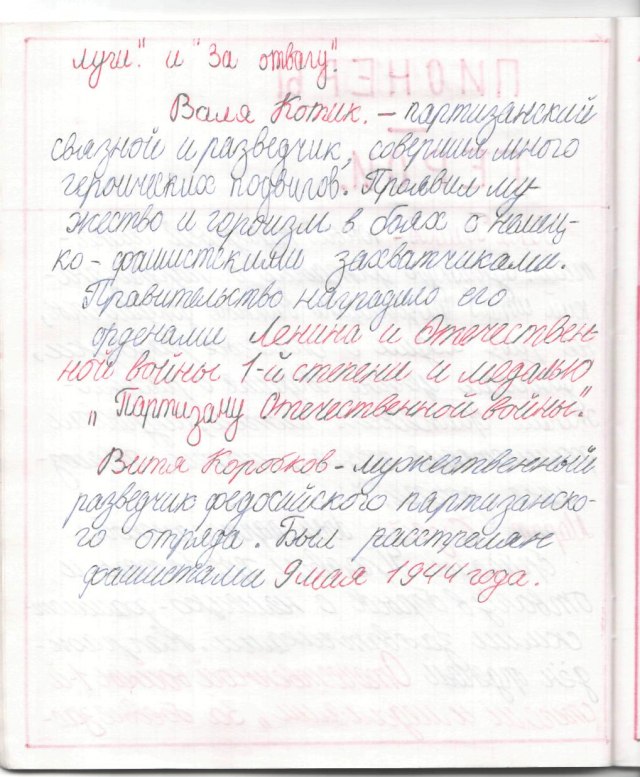 луги". и "За отвагу".
Валя Котик. - партизанский
связной и разведчик, совершил много
героических подвигов. Проявил му-
жество и героизм в боях с немец-
ко-фашистскими захватчиками.
Правительство наградило его
орденами Ленина и Отечествен-
ной войны 1-й степени и медалью
"Партизану Отечественной войны".
Витя Коробков - мужественный
разведчик федосийского партизанско-
го отряда. Был расстрелян
фашистами 9 мая 1944 года.